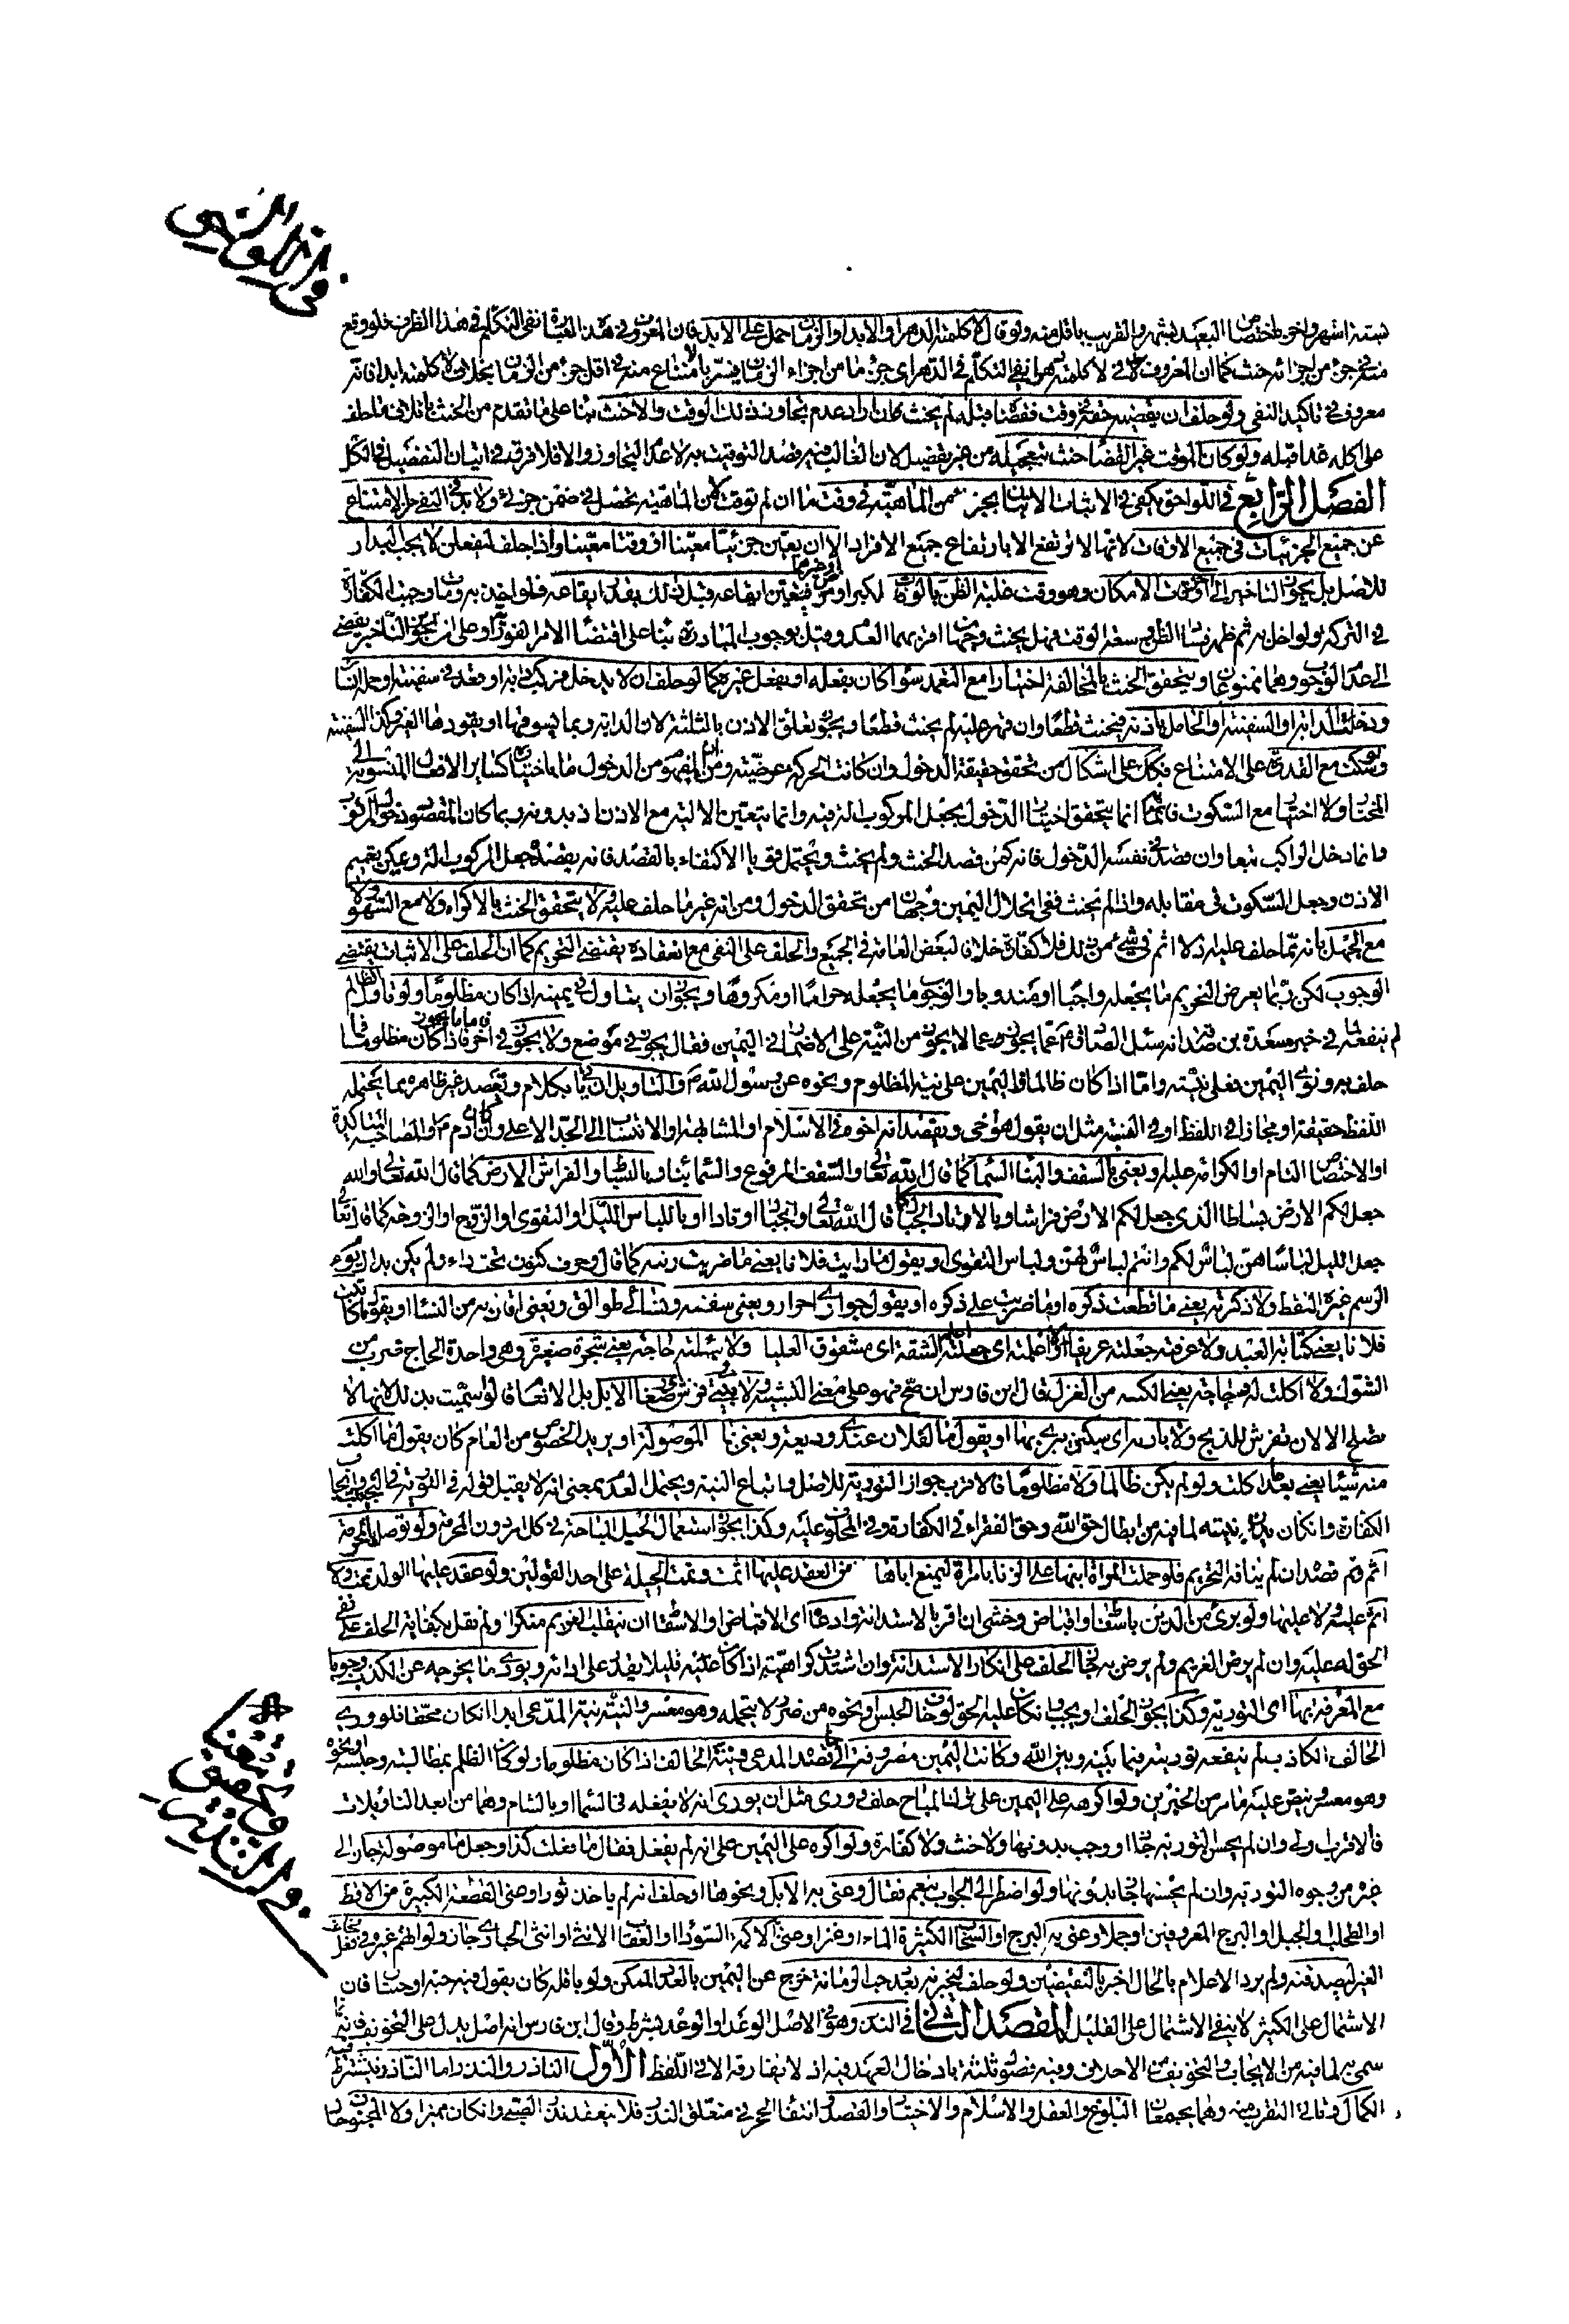 في اللواحق
بستة اشهر واخرى باختصاص البعيد بشهر والقريب باقل منه ولو قال لا كلمته الدهر او الابد او الزمان حمل على الابد فان المعروف في هذه العبارة نفي التكلم في هذا الظرف فلو وقع
منه في جزء من اجزائه حنث كما ان المعروف في لا كلمته دهرا نفي التكلم في الدهر اي جزء ما من اجزاء الزمان فيبر بالامتناع منه في اقل جزء من الزمان بخلاف لا كلمته ابدا فانه
معروف في تاكيد النفي ولو حلف ان يقضيه حقه في وقت فقضاه قبله لم يحنث ان اراد عدم تجاوز ذلك الوقت والا حنث بناء على ما تقدم من الحنث باتلاف ما حلف
على اكله غدا قبله ولو كان الموقت غير القضاء حنث بتعجيله من غير تفصيل لان الغالب فيه قصد التوقيت به لا عدم التجاوز والا فلا فرق في اتيان التفصيل في الكل
الفصل الرابع في اللواحق يكفي في الاثبات الاتيان بجزء ضمن الماهية في وقت ما ان لم توقت لان الماهية تحصل في ضمن جزئي ولا بد في النفي من الامتناع
عن جميع الجزئيات في جميع الاوقات لانها لا ترتفع الا بارتفاع جميع الافراد الا ان يعين جزئيا معينا او وقتا معينا واذا حلف ليفعلن لا يجب البدار
للاصل بل يجوز التاخير الى آخر اوقات الامكان وهو وقت غلبة الظن بالوفاة لكبر او مرض او غيرهما فيتعين ايقاعه قبل ذلك بقدر ايقاعه فلو اخل به ومات وجبت الكفارة
في التركة ولو اخل به ثم ظهر فساد الظن وسعة الوقت فهل يحنث وجهان اقربهما العدم وقيل بوجوب المبادرة بناء على اقتضاء الامر الفور او على ان تجويز التاخير يفضي
الى عدم الوجوب وهما ممنوعان ويتحقق الحنث بالمخالفة اختيارا مع التعمد سواء كان بفعله او بفعل غيره كما لو حلف ان لا يدخل فركب دابة او قعد في سفينة او حمله انسان
ودخلت الدابة او السفينة او الحامل باذنه فيحنث قطعا وان قهر عليه لم يحنث قطعا ويجوز تعلق الاذن بالثلثة لان الدابة ربما يسوقها او يقودها الغير وكذا السفينة
ولو سكت مع القدرة على الامتناع فكل على اشكال من تحقق حقيقة الدخول وان كانت الحركة عرضية ومن ان المفهوم من الدخول ما باختياره كسائر الافعال المنسوبة الى
المختار ولا اختيار مع السكوت فانما يتحقق اختيار الدخول بجعل المركوب الة فيه وانما يتعين الالية مع الاذن اذ بدونه ربما كان المقصود دخول المركوب
وانما دخل الراكب تبعا وان قصد في نفسه الدخول فانه كمن قصد الحنث ولم يحنث ويحتمل قويا الاكتفاء بالقصد فانه بقصده جعل المركوب الة ويمكن تعميم
الاذن وجعل السكوت في مقابله واذا لم يحنث ففي انحلال اليمين وجهان من تحقق الدخول ومن انه غير ما حلف عليه ولا يتحقق الحنث بالاكراه ولا مع السهو ولا
مع الجهل بانه مما حلف عليه اذ لا اثم في شيء من ذلك فلا كفارة خلافا لبعض العامة في الجميع والحلف على النفي مع انعقاده يقتضي التحريم كما ان الحلف على الاثبات يقتضي
الوجوب لكن ربما يعرض التحريم ما يجعله واجبا او مندوبا والوجوب ما يجعله حراما او مكروها ويجوز ان يتاول في يمينه اذا كان مظلوما ولو تاول الظالم
لم ينفعه في خبر مسعدة بن صدقة انه سئل الصادق ع عما يجوز وعما لا يجوز من النية على الاضمار في اليمين فقال يجوز في موضع ولا يجوز في اخر فاما ما يجوز فاذا كان مظلوما فما
حلف به ونوى اليمين فعلى نيته واما اذا كان ظالما فاليمين على نية المظلوم ونحوه عن رسول الله ص والتاويل ان ياتي بكلام ويقصد غير ظاهره بما يحتمله
اللفظ حقيقة او مجازا في اللفظ او في النسبة مثل ان يقول هو اخي ويقصد انه اخوه في الاسلام او المشابهة او الانتساب الى الجد الاعلى وان كان آدم ع او المصاحبة المتاكدة
او الاختصاص التام او الكرامة عليه ويعني بالسقف والبناء السماء كما قال الله تعالى والسقف المرفوع والسماء بناء وبالبساط والفراش الارض كما قال الله تعالى والله
جعل لكم الارض بساطا الذي جعل لكم الارض فراشا وبالاوتاد الجبال كما قال الله تعالى والجبال اوتادا او باللباس الليل او التقوى او الزوج او الزوجة كما قال تعالى
جعل الليل لباسا هن لباس لكم وانتم لباس لهن ولباس التقوى او يقول ما رايت فلانا يعني ما ضربت رئته كما قال وحرف كنون تحت راء ولم يكن بدال يؤم
الرسم غيره النقط ولا ذكرته يعني ما قطعت ذكره او ما ضربت على ذكره او يقول جواري احرار ويعني سفنه ونسائي طوالق ويعني اقاربه من النساء او يقول ما كاتبت
فلانا يعني كتابة العبد ولا عرفته جعلته عريفا ولا اعلمته اي جعلته اعلم الشفة اي مشقوق العليا ولا سالته حاجة يعني شجرة صغيرة وهي واحدة الحاج ضرب من
الشوك ولا اكلت له دجاجة يعني الكبة من الغزل قال ابن فارس ان صح فهو على معنى التشبيه ولا في بيتي فرش يعني صغار الابل بل الانعام قالوا سميت بذلك لانها لا
تصلح الا لان تفرش للذبح ولا بارية اي سكين يبري بها او يقول ما لفلان عندي وديعة ويعني بما الموصولة او يريد الخصوص من العام كان يقول ما اكلت
منه شيئا يعني بعد ما اكلت ولو لم يكن ظالما ولا مظلوما فالاقرب جواز التورية للاصل واتباع النية ويحتمل العدم بمعنى انه لا يقبل قوله في التورية
الكفارة وان كان يدين بنيته لما فيه من ابطال حق الله وحق الفقراء في الكفارة وفي المحلوف عليه وكذا يجوز استعمال الحيل المباحة في كل امر دون المحرمة ولو توصل بالمحرمة
اثم وتم قصده ان لم ينافه التحريم فلو حملت المراة ابنها على الزنا بامراة ليمنع اباها من العقد عليها اثمت وتمت الحيلة على احد القولين ولو عقد عليها الولد تمت ولا
اثم عليه ولا عليها ولو برئ من الدين باسقاط او اقباض وخشي ان اقر بالاستدانة وادعا اي الاقباض او الاسقاط ان ينقلب الغريم منكرا ولم نقل بكفاية الحلف على نفي
الحق له عليه وان لم يرض الغريم ولم يرض به جاز الحلف على انكار الاستدانة وان اشتدت كراهيته اذا كان عليه قليلا يقدر على ادائه ويوري ما يخرجه عن الكذب وجوبا
مع المعرفة بها اي التورية وكذا يجوز الحلف او يجب ان كان عليه الحق لو خاف الحبس ونحوه من ضرر لا يتحمله وهو معسر والنية نية المدعي ابدا ان كان محقا فلو ورى
الحالف الكاذب لم ينفعه توريته فيما بينه وبين الله وكانت اليمين مصروفة الى ما قصد المدعي ونية الحالف اذا كان مظلوما ولو كان الظلم بمطالبته وحبسه او نحوه
وهو معسر وينص عليه ما مر من الخبرين ولو اكرهه على اليمين على ترك المباح حلف وورى مثل ان يوري انه لا يفعله في السماء او بالشام وهما من ابعد التاويلات
فالاقرب اولى وان لم يحسن التورية جاز او وجب بدونها ولا حنث ولا كفارة ولو اكره على اليمين على انه لم يفعل فقال ما فعلت كذا وجعل ما موصولة جاز الى
غيره من وجوه التورية وان لم يحسنها جاز بدونها ولو اضطر الى الجواب بنعم فقال وعنى به الابل ونحوها او حلف انه لم ياخذ ثورا وعنى القطعة الكبيرة من الاقط
او الطحلب والجبل او البرج المعروفين او جملا وعنى به البرج او السحاب الكثيرة الماء او عنزا وعنى الاكمة السوداء او العقاب الانثى او انثى الحبارى جاز ولو اتهم غيره في فعل فحلف
الغير ليصدقنه ولم يرد الاعلام بالحال اخبر بالنقيضين ولو حلف ليخبرنه بعدد حب الرمانة خرج عن اليمين بالعدد الممكن ولو باقله كان يقول فيه حبة او حبتان فان
الاشتمال على الكثير لا ينفي الاشتمال على القليل المقصد الثاني في النذر وهو في الاصل الوعد او الوعد بشرط وقال ابن فارس انه اصل يدل على التخويف وانه انما
سمي به لما فيه من الايجاب والتخويف من الاخلاف وفيه فصول ثلثة بادخال العهد فيه اذ لا يفارقه الا في اللفظ الاول الناذر والنذر اما الناذر فيشترط فيه
الكمال وتاتي التقرب منه وهما يجمعان البلوغ والعقل والاسلام والاختيار والقصد وانتفاء الحجر في متعلق النذر فلا ينعقد نذر الصبي وان كان مميزا ولا المجنون حال